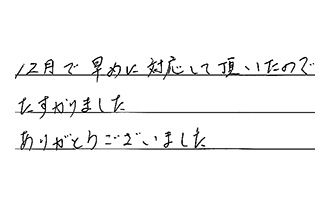 12月で早めに対応して頂いたので
たすかりました
ありがとうございました